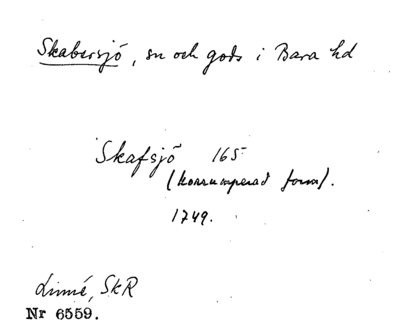 Skabersjö, sn och gods i Bara hd
Skafsjö 165
(korrumperad form).
1749.
Linné, SkR
Nr 6559.